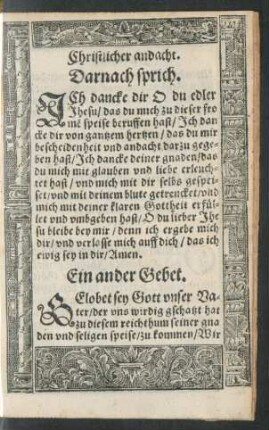 Christlicher andacht.
Darnach sprich.
ICh dancke dir O du edler
Jhesu/das du mich zu dieser fro
mē speise beruffen hast/Ich dan
cke dir von gantzem hertzen/das du mir
bescheidenheit vnd andacht darzu gege-
ben hast/Ich dancke deiner gnaden/das
du mich mit glauben vnd liebe erleuch-
tet hast/vnd mich mit dir selbs gespei-
set/vnd mit deinem blute getrencket/vnd
mich mit deiner klaren Gottheit erfül-
let vnd vmbgeben hast/O du lieber Jhe
su bleibe bey mir/denn ich ergebe mich
dir/vnd verlosse mich auff dich/das ich
ewig sey in dir/Amen.
Ein ander Gebet.
GElobet sey Gott vnser Va-
ter/der vns wirdig geschatzt hat
zu diesem reichthum seiner gna
den vnd seligen speise/zu kommen/Wir